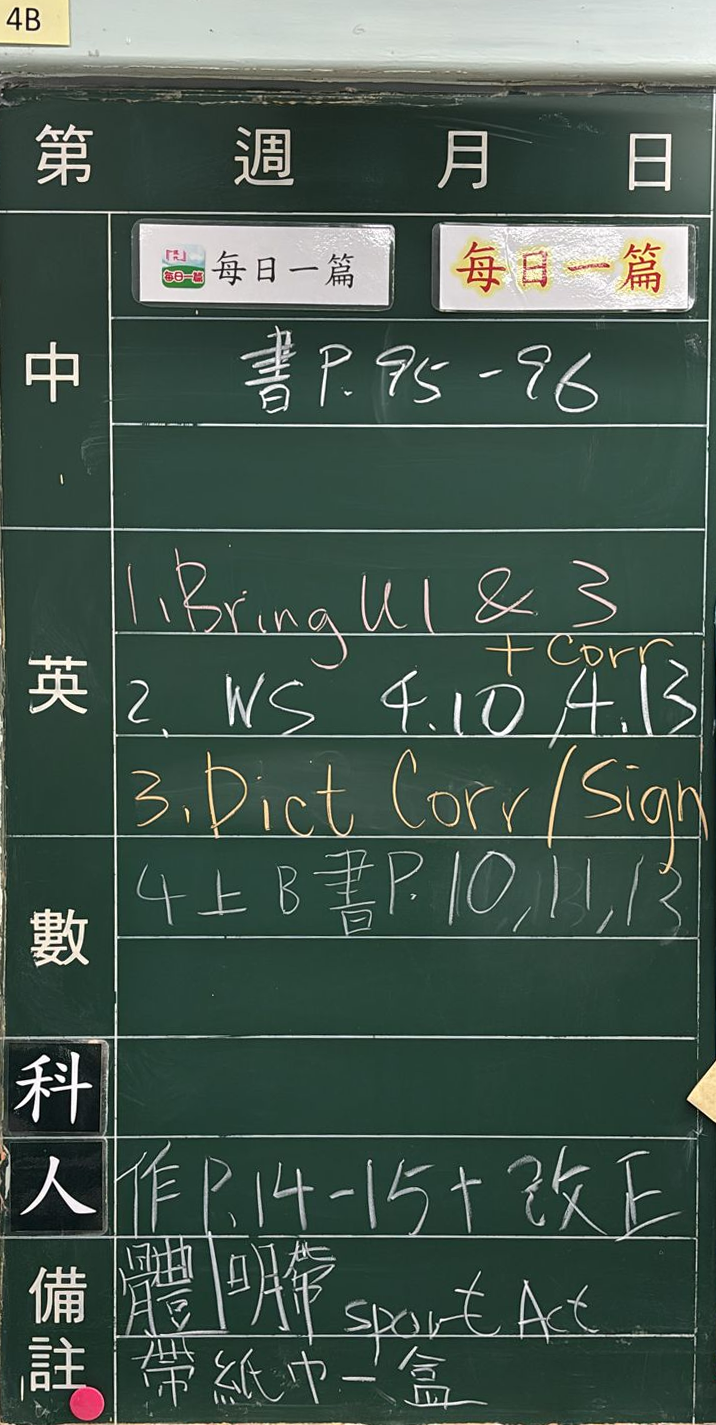 4B
第 週 月 日
每日一篇 每日一篇 每日一篇
中
書 P. 95 - 96
英
1. Bring U1 & 3
+ corr
2. WS 4.10, 4.13
3. Dict Corr / Sign
數
4上B 書 P. 10, 11, 13
科
人
作 P. 14 - 15 + 改正
備註
體|明帶 sport Act
帶紙巾一盒